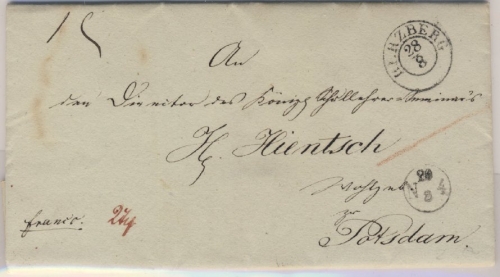 HERZBERG
28/8
An
den Director des Königl Schullehrer-Seminar's
H. Hientsch
Wohlgeb
zu
Potsdam.
franco.
N 4